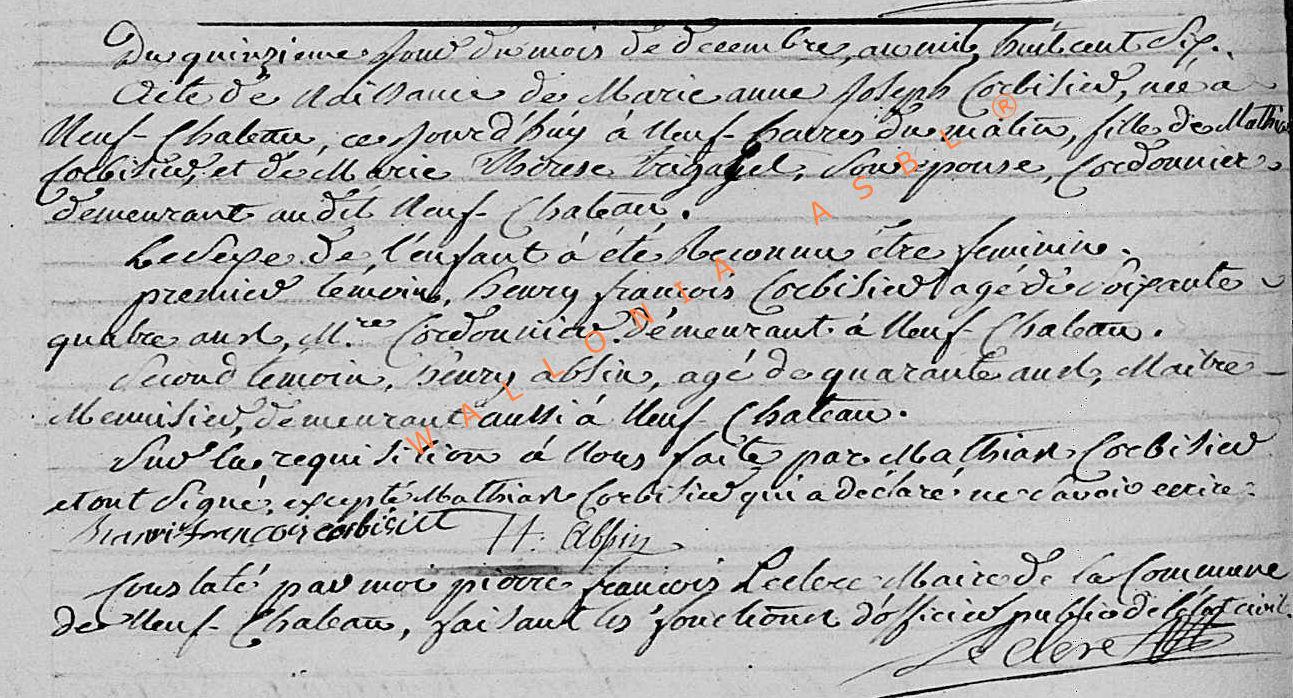 Du quinzieme jour du mois de decembre, an mil huit cent six.
Acte de Naissance de Marie anne Joseph Corbisier, née à
Neuf-Chateau, ce jourd'huy à Neuf heures du matin, fille de Mathias
Corbisier, et de Marie Therese, son epouse, Cordonnier
demeurant au dit Neuf-Chateau.
Le Sexe de l'enfant à été Reconnu être feminin.
premier temoin, henry françois Corbisier agé de soixante
quatre ans, M.re Cordonnier demeurant à Neuf-Chateau.
Second temoin, henry absin, agé de quarante ans, Maitre
Menuisier, demeurant aussi à Neuf-Chateau.
Sur la requisition à Nous faite par Mathias Corbisier
et ont Signé, excepté Mathias Corbisier qui a déclaré ne savoir ecrire.
françois corbisier H. Absin
Constaté par moi pierre françois Leclerc Maire de la Commune
de Neuf-Chateau, faisant les fonctions d'officier public de l'état civil.
Leclere
WALLONIA ASBL ®